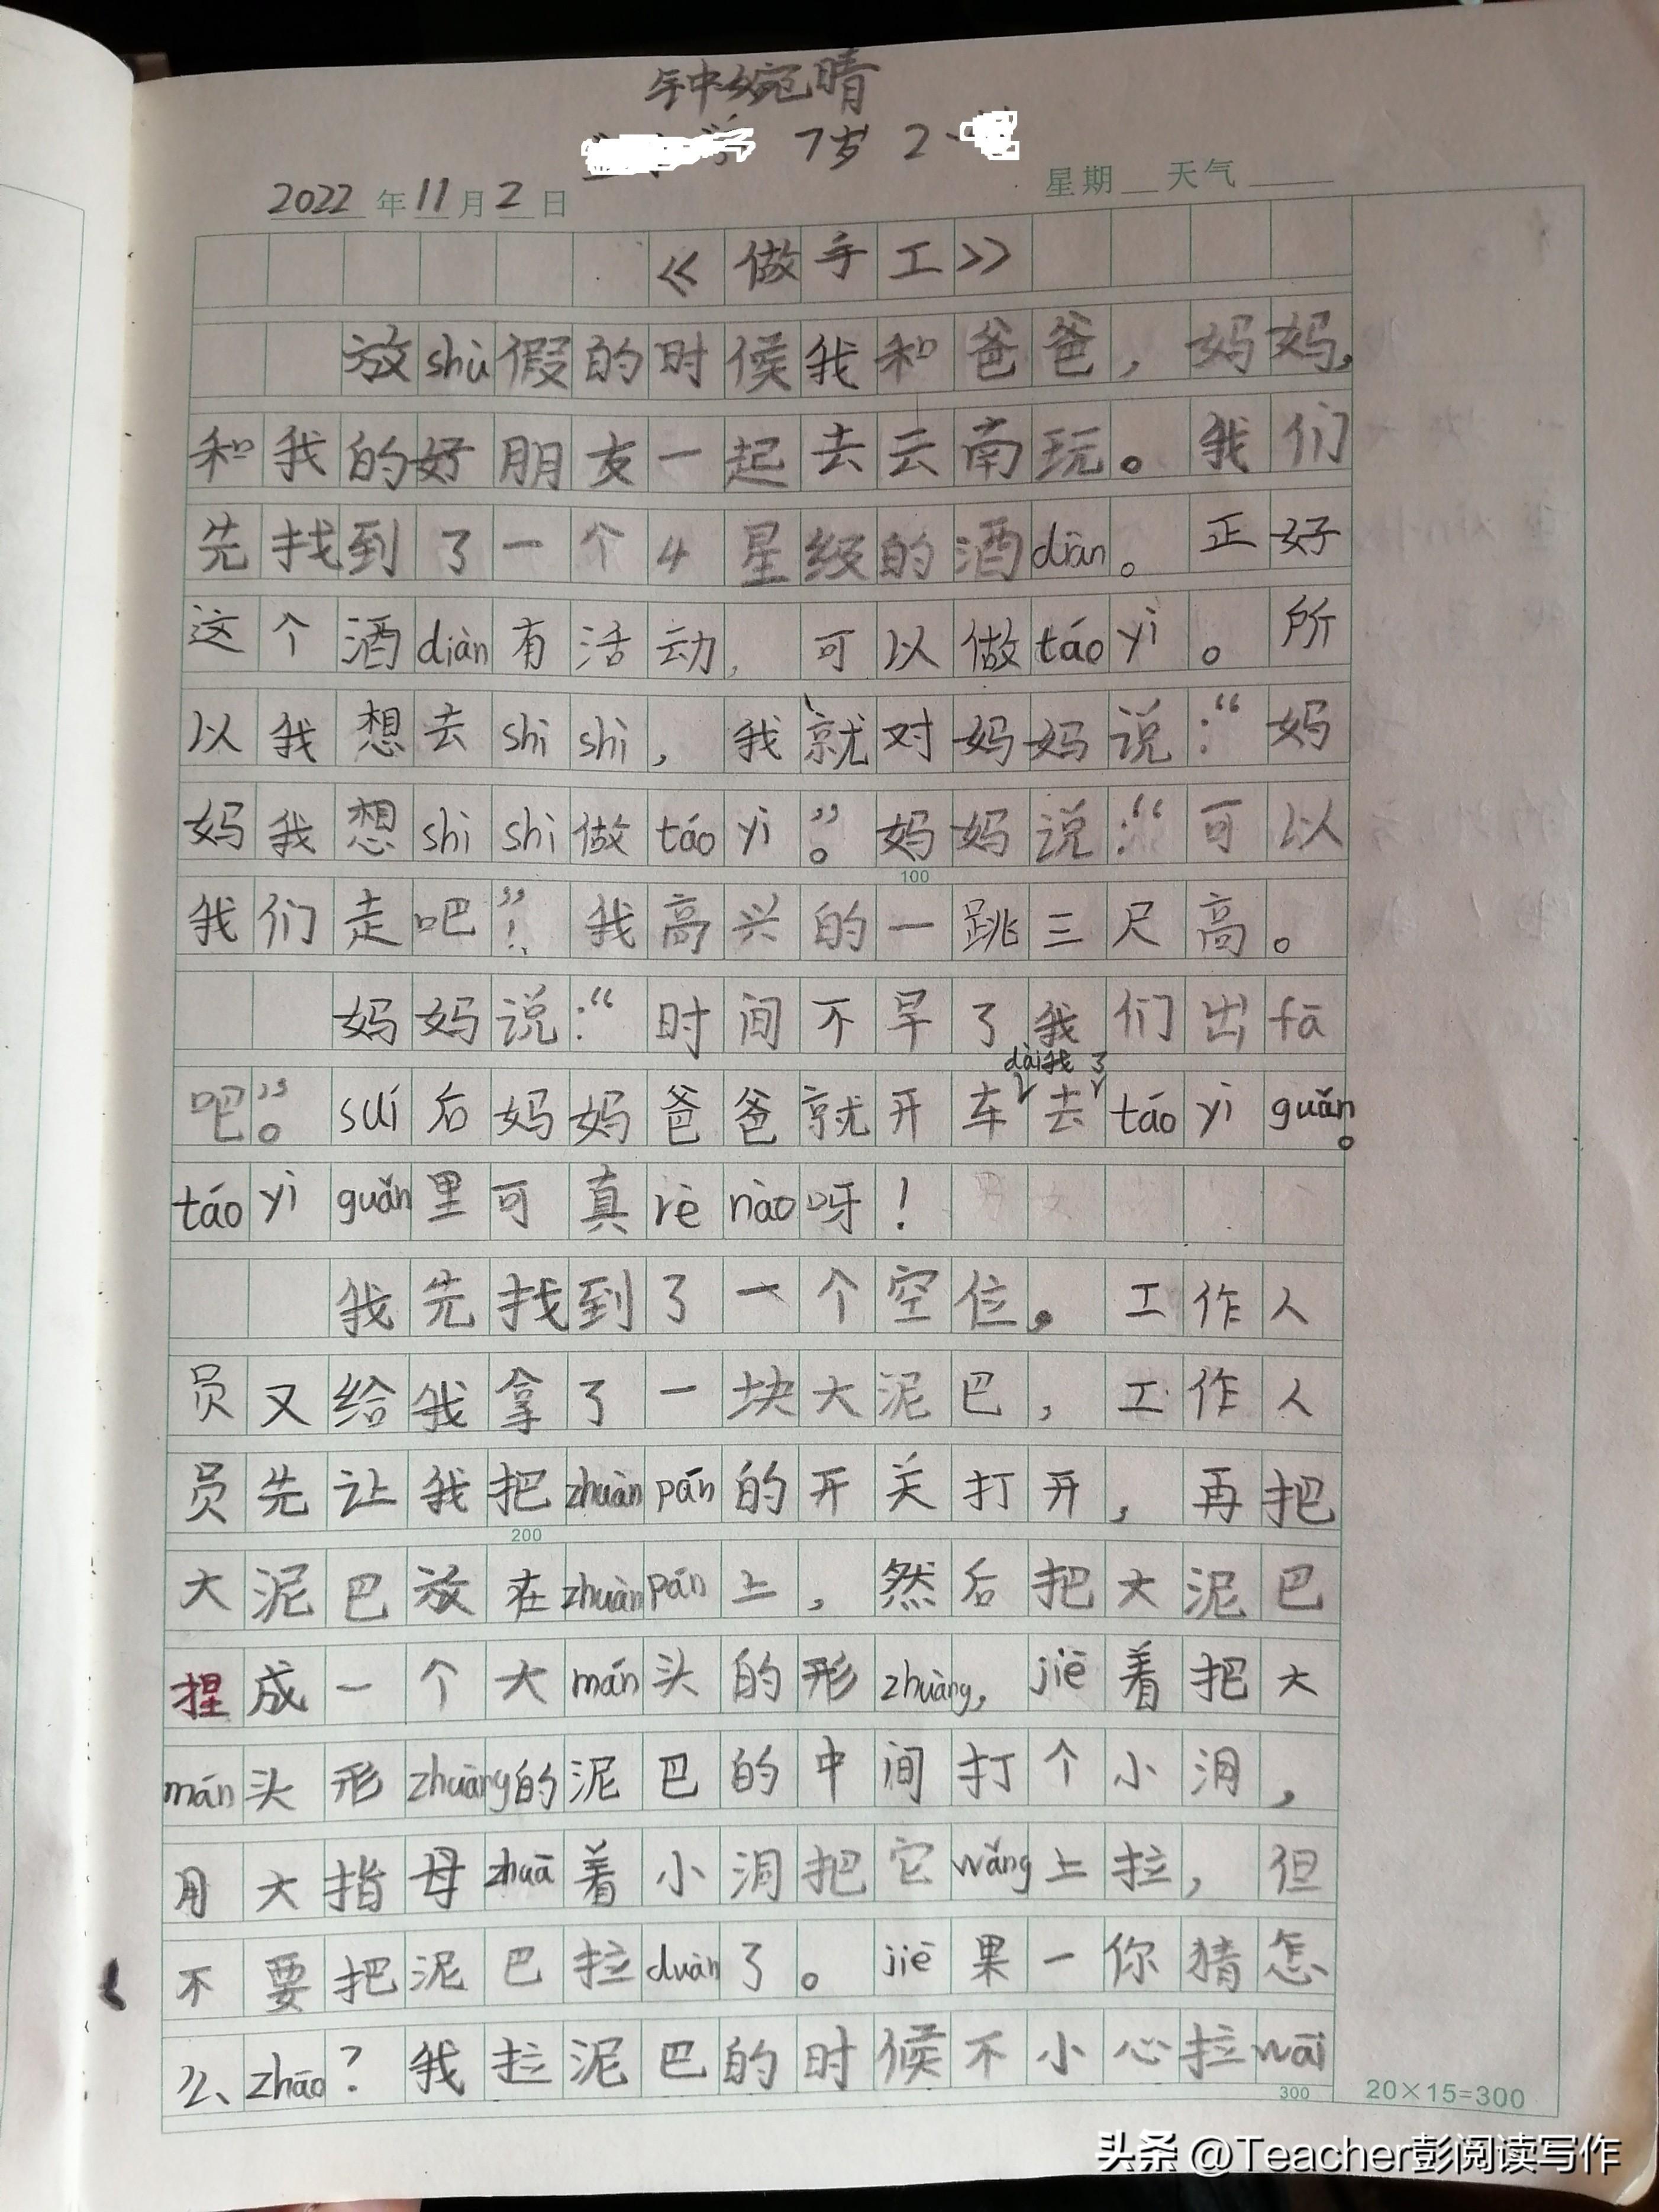 钟婉晴
7岁 2
2022年11月2日 星期 天气
《做手工》
放shǔ假的时候我和爸爸，妈妈，
和我的好朋友一起去云南玩。我们
先找到了一个4星级的酒diàn。正好
这个酒diàn有活动，可以做táo yì。所
以我想去shì shì，我就对妈妈说：“妈
妈我想shì shì做táo yì。”妈妈说：“可以
我们走吧！”我高兴的一跳三尺高。
妈妈说：“时间不早了我们出fā
吧。”suí后妈妈爸爸就开车dài我去了táo yì guǎn。
táo yì guǎn里可真rè nào呀！
我先找到了一个空位。工作人
员又给我拿了一块大泥巴，工作人
员先让我把zhuàn pán的开关打开，再把
大泥巴放在zhuàn pán上，然后把大泥巴
捏成一个大mán头的形zhuàng，jiē着把大
mán头形zhuàng的泥巴的中间打个小洞，
用大指母zhuā着小洞把它wǎng上拉，但
不要把泥巴拉duàn了。jiē果一你猜怎
么zhāo？我拉泥巴的时候不小心拉wāi
100
200
300
20×15=300
头条 @Teacher彭阅读写作